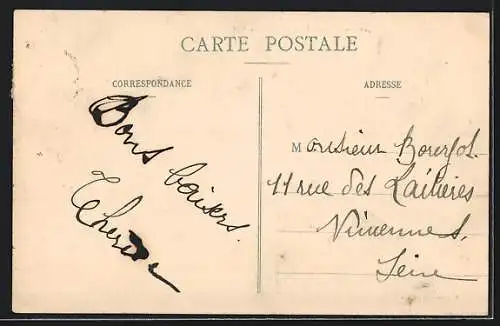 CARTE POSTALE
CORRESPONDANCE
Bons baisers.
Therese
ADRESSE
Monsieur
11 rue des Laitières
Vincennes,
Seine